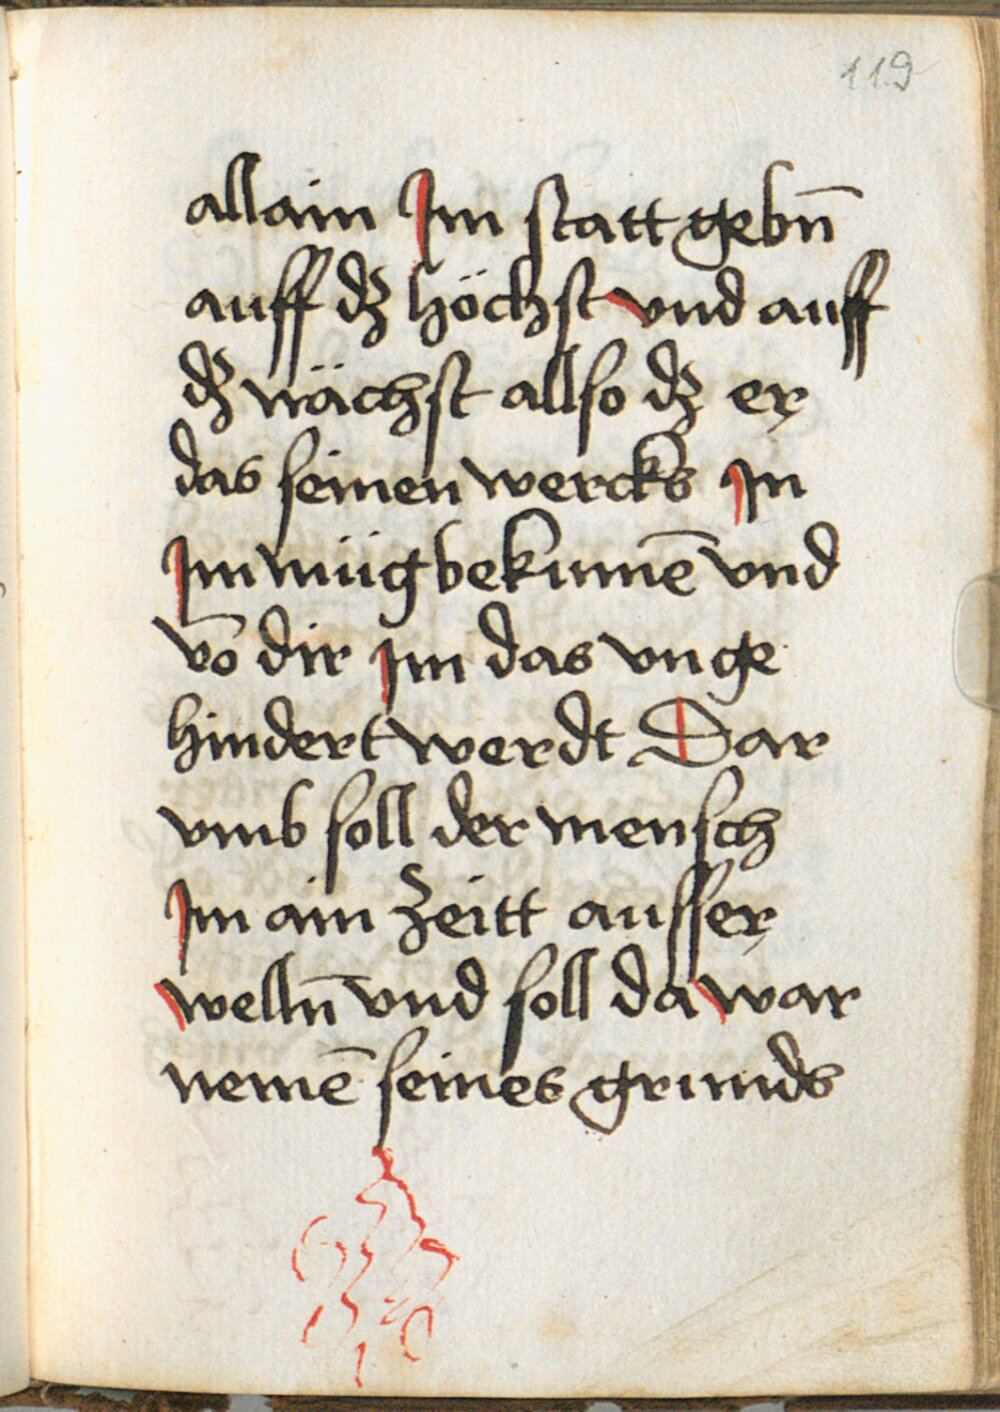 119
allain Im statt gebn̄
auff dʒ höchst vnd auff
dʒ nächst allso dʒ er
das seinen wercks In
Im müg bekumē vnd
vō dir im das vnge
hindert werdt Dar
vmb soll der mensch
Im ain zeitt ausser
welln̄ vnd soll da war
nemē seines grunds